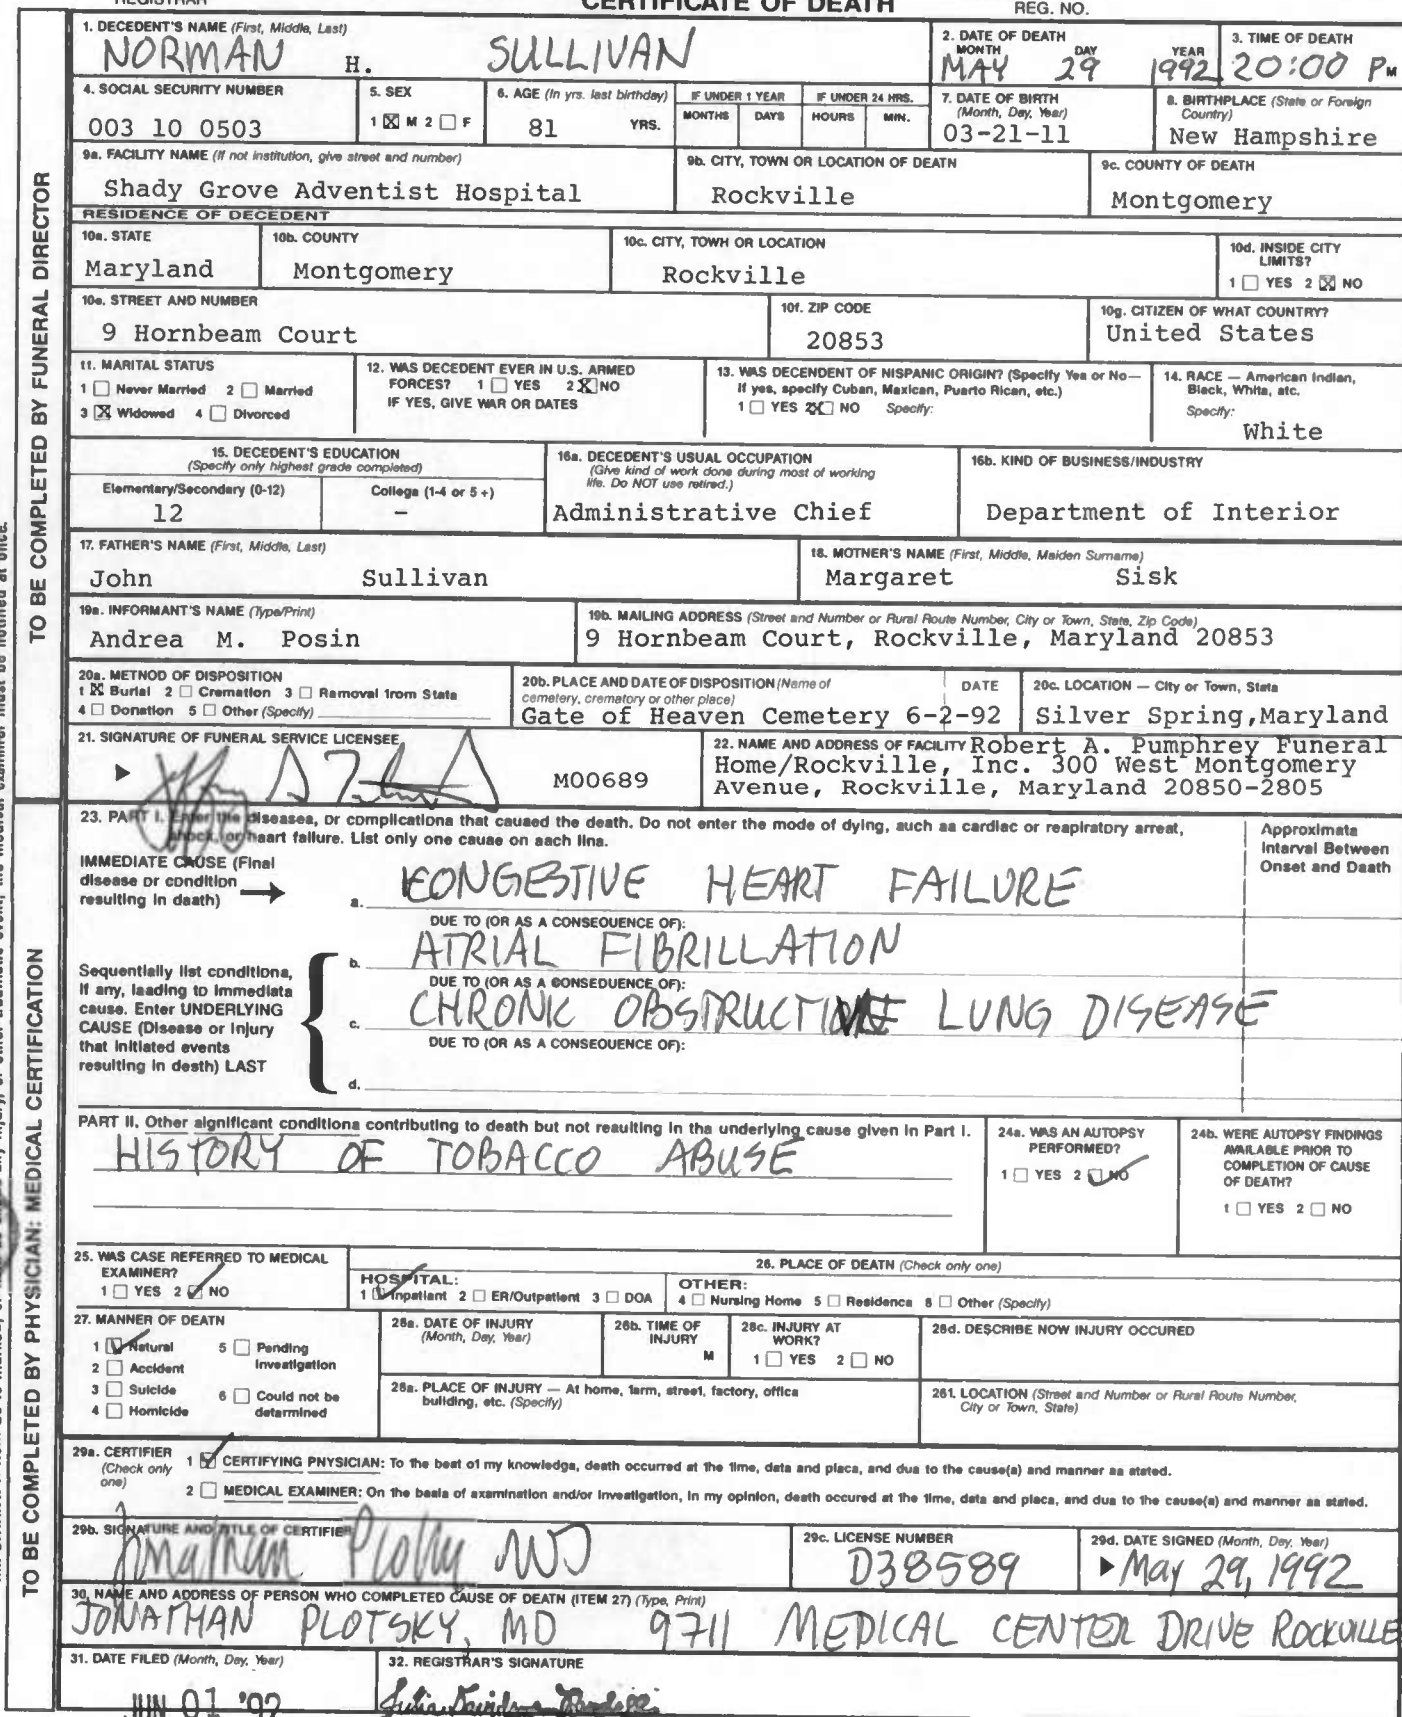 CERTIFICATE OF DEATH
REG. NO.
1. DECEDENT'S NAME (First, Middle, Last)
NORMAN H. SULLIVAN
2. DATE OF DEATH
MONTH DAY YEAR
MAY 29 1992
3. TIME OF DEATH
20:00 PM
4. SOCIAL SECURITY NUMBER
003 10 0503
5. SEX
1 ☒ M 2 ☐ F
6. AGE (In yrs. last birthday)
81 YRS.
IF UNDER 1 YEAR
MONTHS DAYS
IF UNDER 24 HRS.
HOURS MIN.
7. DATE OF BIRTH
(Month, Day, Year)
03-21-11
8. BIRTHPLACE (State or Foreign
Country)
New Hampshire
9a. FACILITY NAME (If not institution, give street and number)
Shady Grove Adventist Hospital
9b. CITY, TOWN OR LOCATION OF DEATH
Rockville
9c. COUNTY OF DEATH
Montgomery
RESIDENCE OF DECEDENT
10a. STATE
Maryland
10b. COUNTY
Montgomery
10c. CITY, TOWH OR LOCATION
Rockville
10d. INSIDE CITY
LIMITS?
1 ☐ YES 2 ☒ NO
10e. STREET AND NUMBER
9 Hornbeam Court
10f. ZIP CODE
20853
10g. CITIZEN OF WHAT COUNTRY?
United States
11. MARITAL STATUS
1 ☐ Never Married 2 ☐ Married
3 ☒ Widowed 4 ☐ Divorced
12. WAS DECEDENT EVER IN U.S. ARMED
FORCES? 1 ☐ YES 2 ☒ NO
IF YES, GIVE WAR OR DATES
13. WAS DECENDENT OF NISPANIC ORIGIN? (Specify Yes or No—
If yes, specify Cuban, Maxican, Puarto Rican, etc.)
1 ☐ YES 2 ☒ NO Specify:
14. RACE — American Indian,
Black, White, atc.
Specify:
White
15. DECEDENT'S EDUCATION
(Specify only highest grade completed)
Elementary/Secondary (0-12)
12
Collega (1-4 or 5 +)
–
16a. DECEDENT'S USUAL OCCUPATION
(Give kind of work done during most of working
life. Do NOT use retired.)
Administrative Chief
16b. KIND OF BUSINESS/INDUSTRY
Department of Interior
17. FATHER'S NAME (First, Middle, Last)
John Sullivan
18. MOTNER'S NAME (First, Middle, Maiden Surname)
Margaret Sisk
19a. INFORMANT'S NAME (Type/Print)
Andrea M. Posin
19b. MAILING ADDRESS (Street and Number or Rural Route Number, City or Town, State, Zip Code)
9 Hornbeam Court, Rockville, Maryland 20853
20a. METNOD OF DISPOSITION
1 ☒ Burial 2 ☐ Cremation 3 ☐ Ramoval 1rom Stata
4 ☐ Donation 5 ☐ Other (Specify)
20b. PLACE AND DATE OF DISPOSITION (Name of
cemetery, crematory or other place)
DATE
Gate of Heaven Cemetery 6-2-92
20c. LOCATION — City or Town, Stata
Silver Spring,Maryland
21. SIGNATURE OF FUNERAL SERVICE LICENSEE
M00689
22. NAME AND ADDRESS OF FACILITY Robert A. Pumphrey Funeral
Home/Rockville, Inc. 300 West Montgomery
Avenue, Rockville, Maryland 20850-2805
TO BE COMPLETED BY FUNERAL DIRECTOR
23. PART I. Enter the diseases, or complications that caused the death. Do not enter the mode of dying, auch aa cardlac or reapiratory arreat,
shock, or heart failure. List only one cauae on aach lina.
Approximata
Interval Between
Onset and Daath
IMMEDIATE CAUSE (Final
disease or condition
resulting in daath)
a. CONGESTIVE HEART FAILURE
DUE TO (OR AS A CONSEOUENCE OF):
b. ATRIAL FIBRILLATION
DUE TO (OR AS A CONSEDUENCE OF):
Sequentially list conditiona,
If any, laading to Immediata
cause. Enter UNDERLYING
CAUSE (Disease or Injury
that initiated events
resulting in death) LAST
c. CHRONIC OBSTRUCTIVE LUNG DISEASE
DUE TO (OR AS A CONSEOUENCE OF):
d.
PART II. Other aignificant conditiona contributing to death but not reaulting in tha underlying cause given in Part I.
HISTORY OF TOBACCO ABUSE
24a. WAS AN AUTOPSY
PERFORMED?
1 ☐ YES 2 ☑ NO
24b. WERE AUTOPSY FINDINGS
AVAILABLE PRIOR TO
COMPLETION OF CAUSE
OF DEATH?
1 ☐ YES 2 ☐ NO
25. WAS CASE REFERRED TO MEDICAL
EXAMINER?
1 ☐ YES 2 ☑ NO
26. PLACE OF DEATH (Check only one)
HOSPITAL:
1 ☑ Inpatiant 2 ☐ ER/Outpatient 3 ☐ DOA
OTHER:
4 ☐ Nursing Home 5 ☐ Residenca 6 ☐ Other (Specify)
27. MANNER OF DEATN
1 ☑ Natural 5 ☐ Pending
Invaatigation
2 ☐ Accident
3 ☐ Suicide 6 ☐ Could not be
determined
4 ☐ Homicide
28a. DATE OF INJURY
(Month, Day, Year)
28b. TIME OF
INJURY
M
28c. INJURY AT
WORK?
1 ☐ YES 2 ☐ NO
28d. DESCRIBE NOW INJURY OCCURED
28a. PLACE OF INJURY — At home, 1arm, street, factory, offica
building, etc. (Specify)
281. LOCATION (Street and Number or Rural Route Number,
City or Town, State)
29a. CERTIFIER
(Check only
one)
1 ☑ CERTIFYING PNYSICIAN: To the beat o1 my knowledga, death occurred at the time, data and placa, and dua to the cause(a) and manner aa atated.
2 ☐ MEDICAL EXAMINER: On the baala of axamination and/or Inveatigation, in my opinion, death occured at the time, data and placa, and dua to the cause(a) and manner aa stated.
29b. SIGNATURE AND TITLE OF CERTIFIER
Jonathan Plotsky MD
29c. LICENSE NUMBER
D38589
29d. DATE SIGNED (Month, Day, Year)
May 29, 1992
30. NAME AND ADDRESS OF PERSON WHO COMPLETED CAUSE OF DEATH (ITEM 27) (Type, Print)
JONATHAN PLOTSKY, MD 9711 MEDICAL CENTER DRIVE ROCKVILLE
31. DATE FILED (Month, Day, Year)
JUN 01 '92
32. REGISTRAR'S SIGNATURE
TO BE COMPLETED BY PHYSICIAN: MEDICAL CERTIFICATION